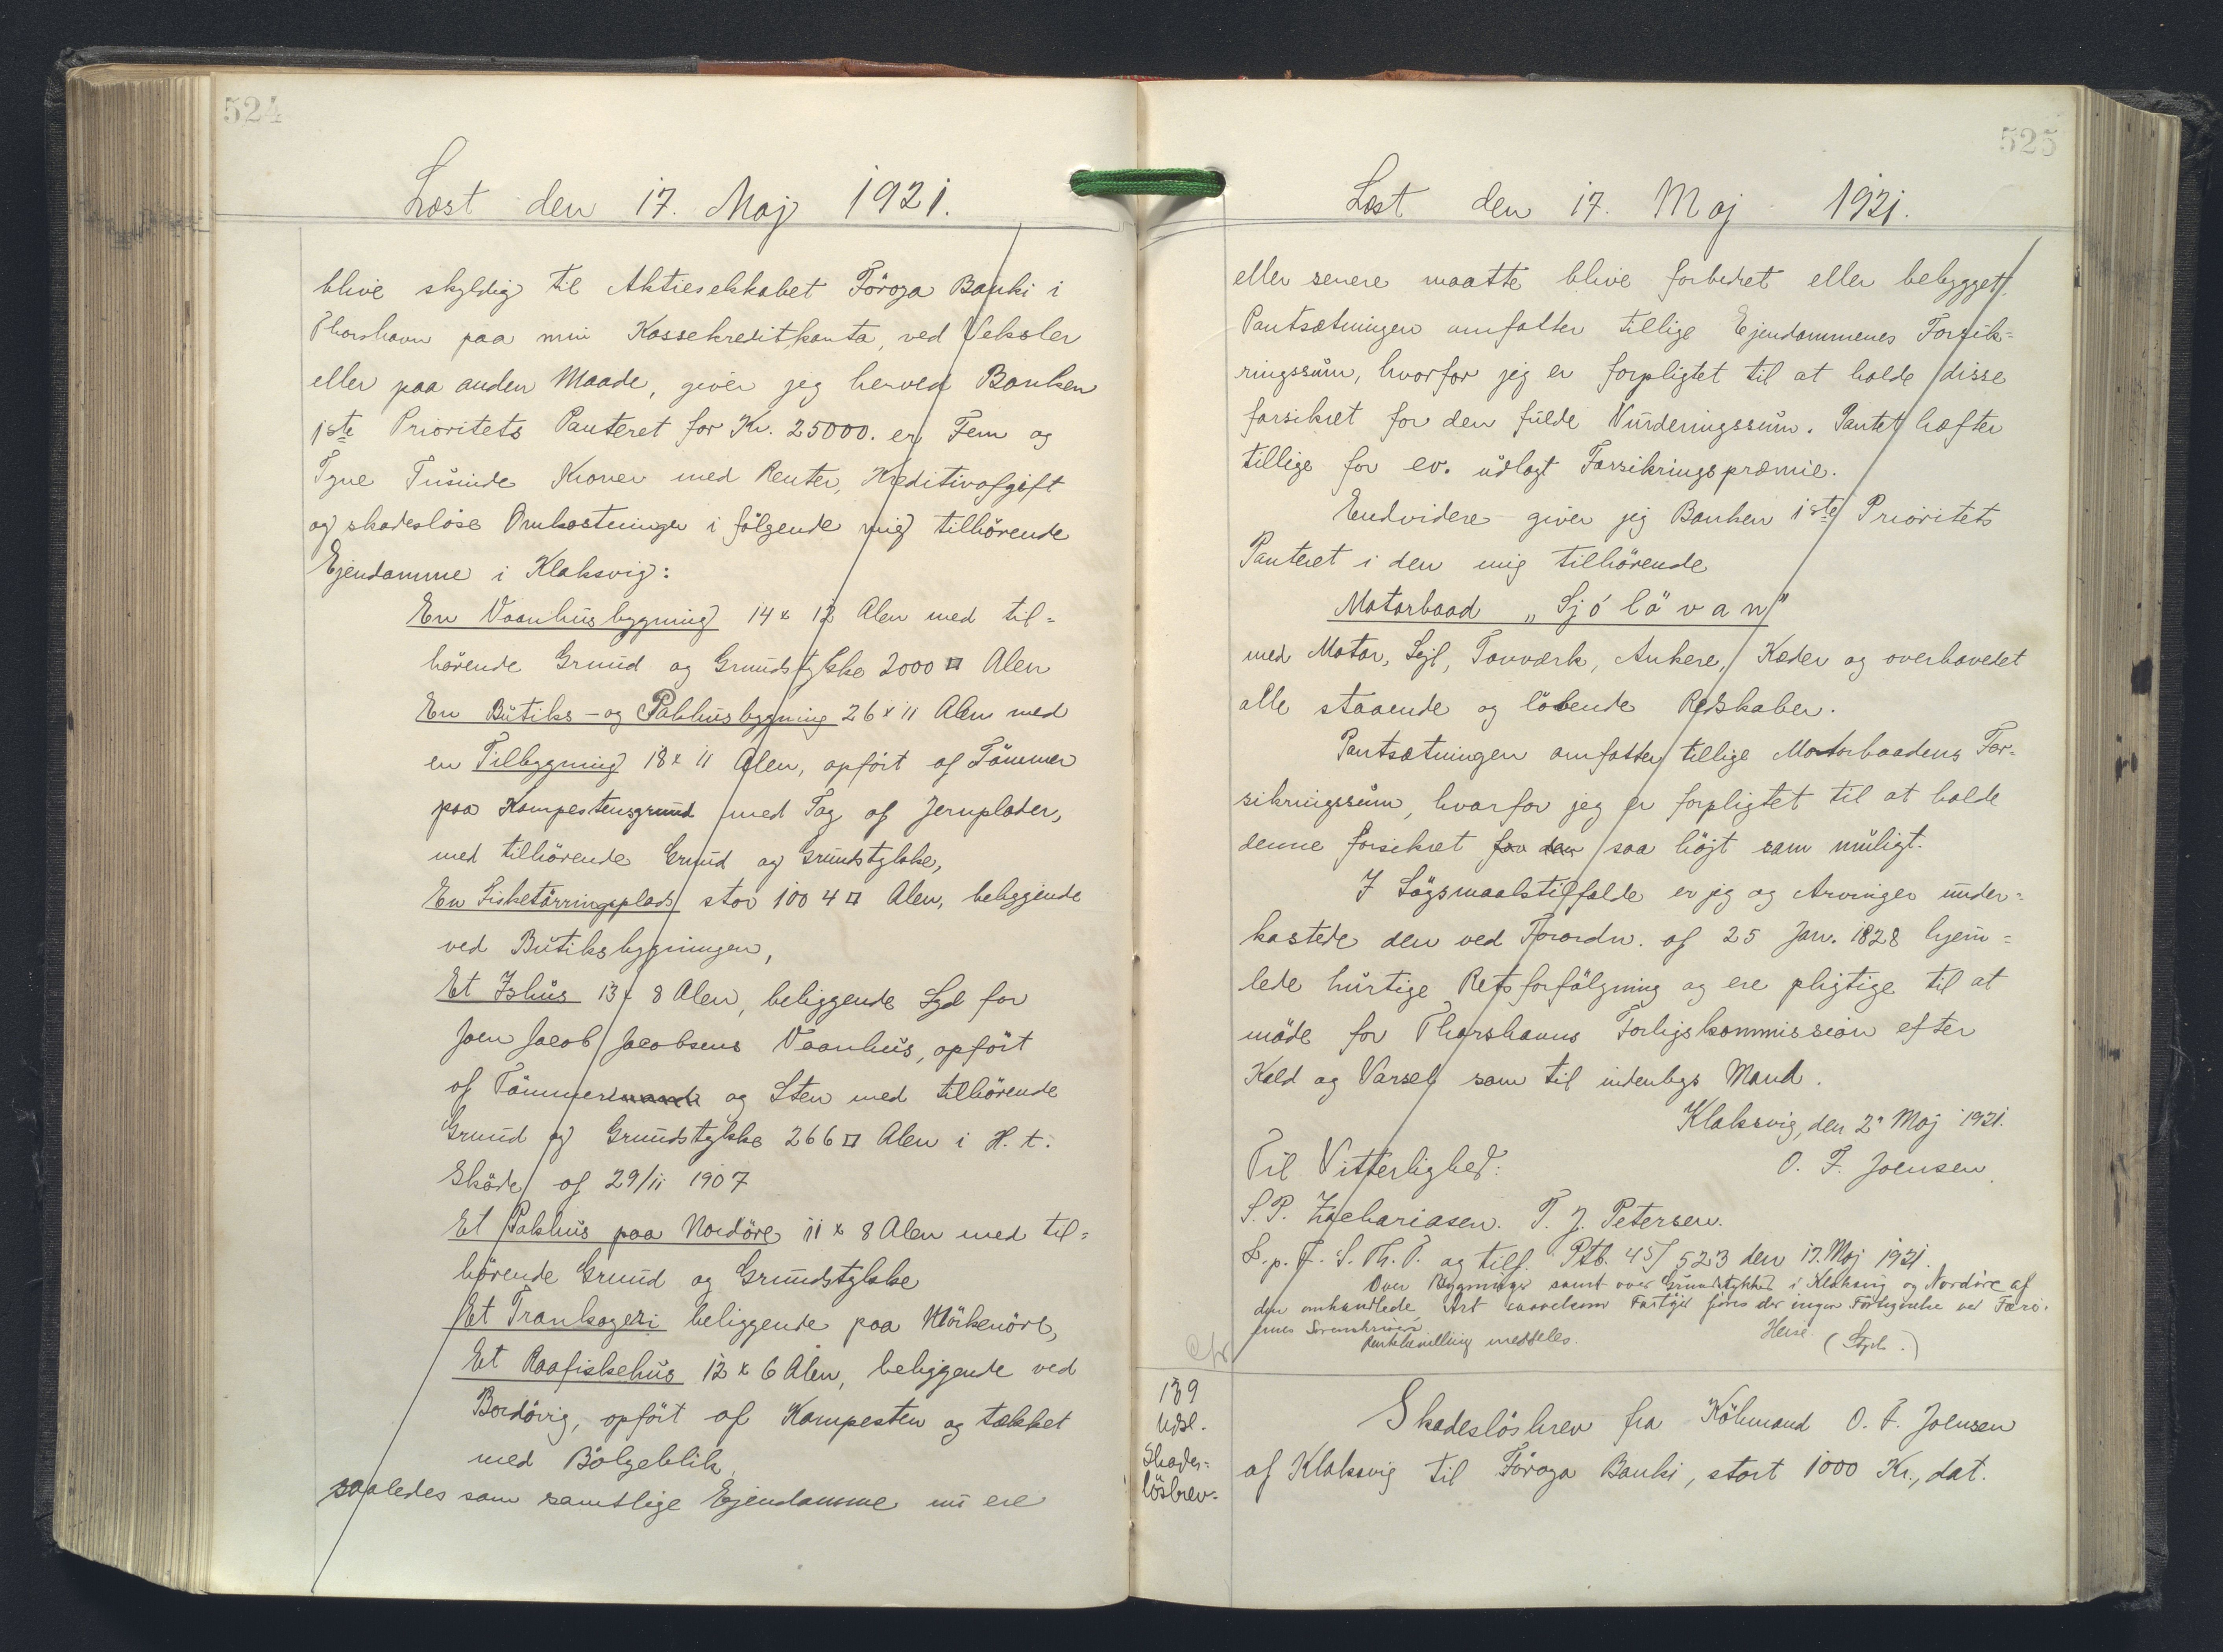 524
Læst den 17. Maj 1921.
blive skyldig til Aktieselskabet Föroya Banki i
Thorshavn paa min Kassekreditkonto, ved Veksler
eller paa anden Maade, giver jeg herved Banken
1ste Prioritets Panteret for Kr. 25000. er Fem og
Tyve Tusinde Kroner med Renter, Kreditivafgift
og skadeslöse Omkostninger i fölgende mig tilhörende
Ejendomme i Klaksvig:
En Vaanhusbygning 14 x 12 Alen med til=
hörende Grund og Grundstykke 2000 □ Alen
En Butiks- og Pakhusbygning 26 x 11 Alen med
en Tilbygning 18 x 11 Alen, opfört af Tömmer
paa Kampestensgrund med Tag af Jernplader,
med tilhörende Grund og Grundstykke,
En Fisketörringsplads stor 1004 □ Alen, beliggende
ved Butiksbygningen,
Et Ishus 13 x 8 Alen, beliggende Syd for
Joen Jacob Jacobsens Vaanhus, opfört
af Tömmer og Sten med tilhörende
Grund og Grundstykke 266 □ Alen i H. t.
Sköde af 29/11 1907
Et Pakhus paa Nordöre 11 x 8 Alen med til=
hörende Grund og Grundstykke
Et Trankogeri beliggende paa
Et Raafiskehus 12 x 6 Alen, beliggende ved
Bordövig, opfört af Kampesten og tækket
med Bölgeblik
saaledes som samtlige Ejendomme nu ere
525
Læst den 17. Maj 1921.
eller senere maatte blive forbedret eller bebygget.
Pantsætningen omfatter tillige Ejendommenes Forsik=
ringssum, hvorfor jeg er forpligtet til at holde disse
forsikret for den fulde Vurderingssum. Pantet hæfter
tillige for ev. udlagt Forsikringspræmie.
Endvidere giver jeg Banken 1ste Prioritets
Panteret i den mig tilhörende
Motorbaad „Sjólövan"
med Motor, Sejl, Tovværk, Ankere, Kæder og overhovedet
alle staaende og löbende Redskaber.
Pantsætningen omfatter tillige Motorbaadens For=
sikringssum, hvorfor jeg er forpligtet til at holde
denne forsikret for den saa höjt som muligt.
I Sögsmaalstilfælde er jeg og Arvinger under=
kastede den ved Forordn. af 25 Jan. 1828 hjem=
lede hurtige Retsforfölgning og ere pligtige til at
möde for Thorshavns Forligskommission efter
Kald og Varsel som til indenbys Mand.
Klaksvig, den 2' Maj 1921.
Til Vitterlighed: O. F. Joensen.
S. P. Zachariasen. T. J. Petersen.
L. p. F. S. Th. T. og tilf. Ptb. 45/523 den 17. Maj 1921.
Over Bygninger samt over Grundstykket i Klaksvig og Nordöre af
den omhandlede Art saavelsom Fartöjer föres der ingen Fortegnelse ved Færö-
ernes Sorenskriveri
meddeles. Heise
139
Udsl.
Skades=
lösbrev.
Skadeslösbrev fra Köbmand O. F. Joensen
af Klaksvig til Föroya Banki, stort 1000 Kr., dat.